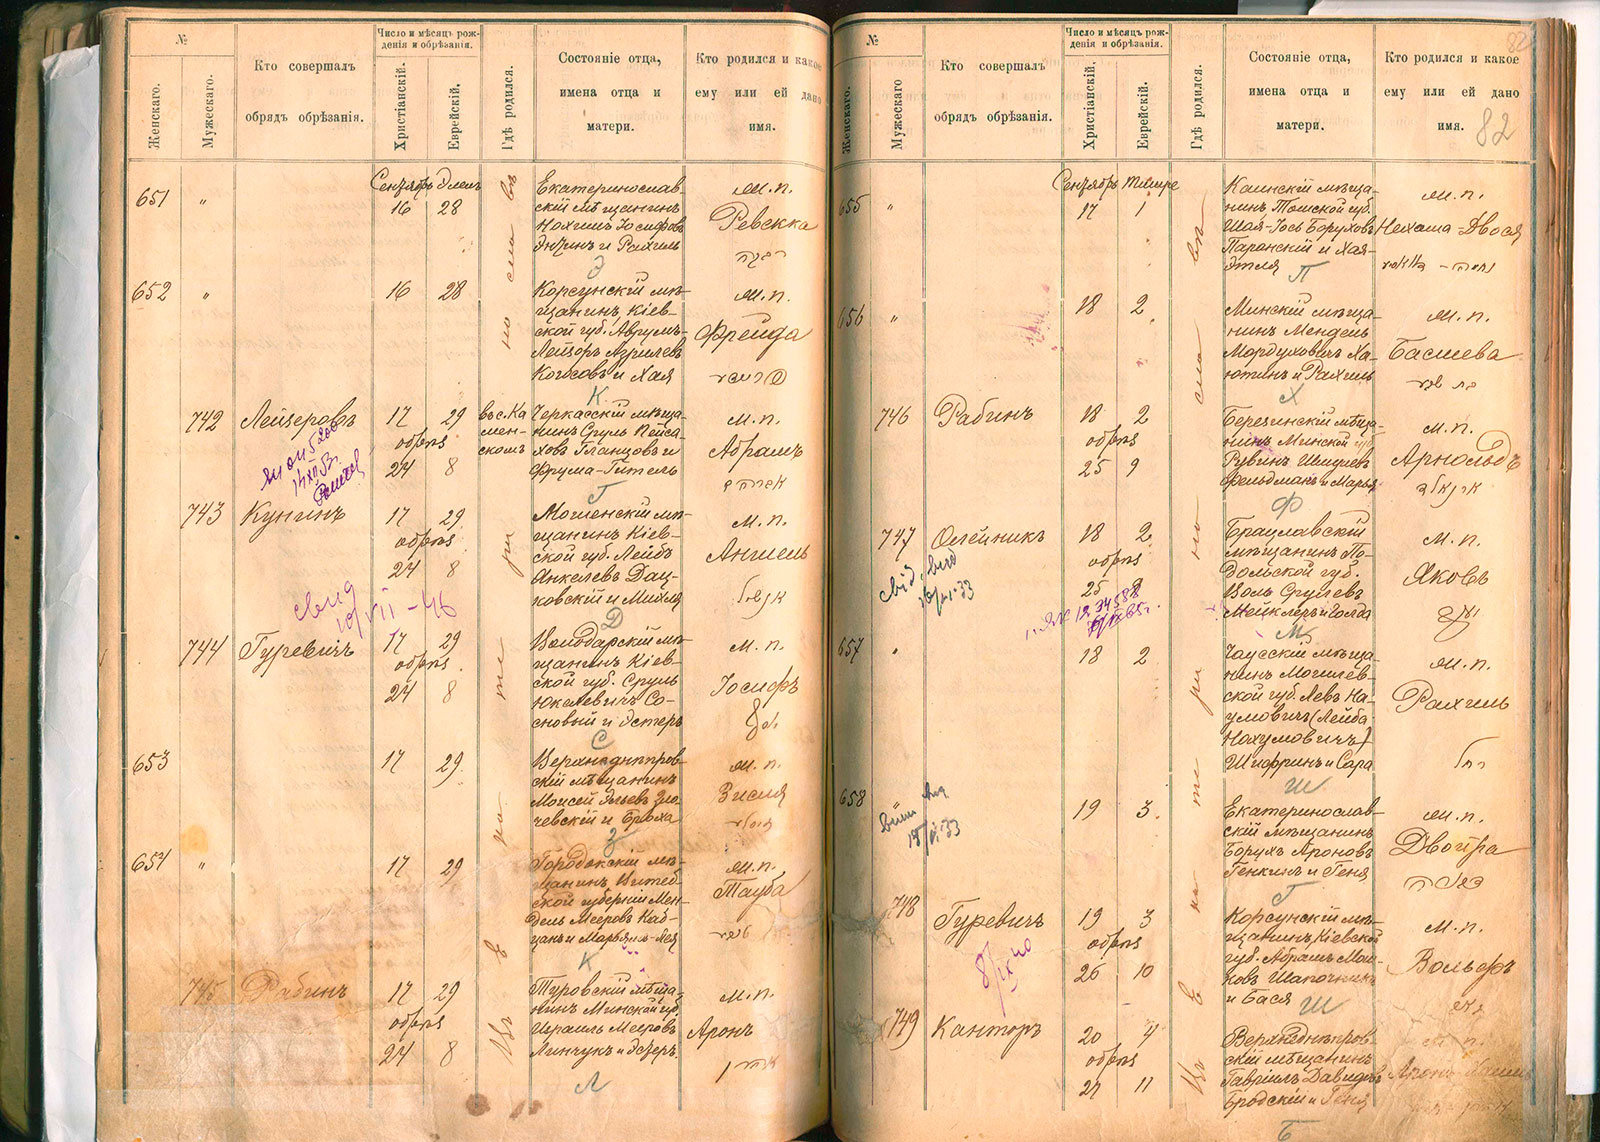 №
Женскаго.
Мужескаго.
Кто совершалъ
обрядъ обрѣзанія.
Число и мѣсяцъ рож-
денія и обрѣзанія.
Христіанскій.
Еврейскій.
Гдѣ родился.
Состояніе отца,
имена отца и
матери.
Кто родился и какое
ему или ей дано
имя.
Въ Екатеринославѣ
651 "
Сентябрь Элелъ
16 28
Екатеринослав-
скій мѣщанинъ
Нохимъ Іосифовъ
и Рахиль
Э
м.п.
Ревекка
רבקה
652 "
16 28
Корсунскій мѣ-
щанинъ, Кіев-
ской губ. Аврумъ-
Лейзоръ
Когосовъ и Хая
К
м.п.
Фрейда
742 Лейзеровъ
17 29
обрѣз
24 8
въ с. Ка
мен-
скомъ
Черкасскій мѣща-
нинъ Сруль Пейса-
ховъ Гланцовъ и
Фрума-Гитель
Г
м.п.
Абрамъ
743 Кунинъ
17 29
обрѣз
24 8
щанинъ Кіев-
ской губ. Лейбъ
Янкелевъ Дац-
ковскій и Михля
Д
м.п.
Аншель
744 Гуревичъ
17 29
обрѣз
24 8
Володарскій мѣ-
щанинъ Кіев-
ской губ. Сруль
Юкелевичъ Со-
сновый и Эстеръ
С
м.п.
Іосифъ
653
17 29
Верхнеднѣпров-
скій мѣщанинъ
Моисей Эльевъ Зло-
чевскій и Броха
З
м.п.
Зисля
654 "
17 29
Городокскій мѣ-
щанинъ Витеб-
ской губерніи Мен-
дель Мееровъ Каб-
цанъ и Марьяша-Лея
К
м.п.
Тауба
745 Рабинъ
17 29
обрѣз
24 8
Туровскій мѣща-
нинъ Минской губ.
Израиль Мееровъ
Линчукъ и Эстеръ
Л
м.п.
Аронъ
82
82
№
Женскаго.
Мужескаго
Кто совершалъ
обрядъ обрѣзанія.
Число и мѣсяцъ рож-
денія и обрѣзанія.
Христіанскій.
Еврейскій.
Гдѣ родился.
Состояніе отца,
имена отца и
матери.
Кто родился и какое
ему или ей дано
имя.
Въ Екатеринославѣ
655 "
Сентябрь Тишре
17 1
Каинскій мѣща-
нинъ Томской губ.
Шая-Іось Боруховъ
Паронскій и Хая-
Этля
П
м.п.
Нехама-Двося
656 "
18 2
Минскій мѣща-
нинъ Мендель
Мордуховичъ Ха-
ютинъ и Рахиль
Х
м.п.
Басшева
746 Рабинъ
18 2
обрѣз
25 9
Березинскій мѣща-
нинъ Минской губ.
Рувинъ
Фельдманъ и Марья
Ф
м.п.
Арнольдъ
747 Олейникъ
18 2
обрѣз
25 9
Брацлавскій
мѣщанинъ По-
дольской губ.
Волъ Срулевъ
Мейклеръ и Голда
М
м.п.
Яковъ
657 "
18 2
Чаусскій мѣща-
нинъ Могилев-
ской губ. Левъ На-
умовичъ (Лейба
Нохумовичъ)
Шифринъ и Сара
Ш
м.п.
Рахиль
רחל
658 "
19 3
Екатеринослав-
скій мѣщанинъ
Борухъ Ароновъ
Генкинъ и Геня
Г
м.п.
Двойра
748 Гуревичъ
8/IX 40
19 3
обрѣз
26 10
Корсунскій мѣ-
щанинъ, Кіевской
губ. Абрамъ Мош-
ковъ Шапочникъ
и Бася
Ш
м.п.
Вольфъ
749 Канторъ
20 4
обрѣз
27 11
Верхнеднѣпров-
скій мѣщанинъ
Гавріилъ Давидовъ
Бродскій и Геня
Б
м.п.
Аронъ